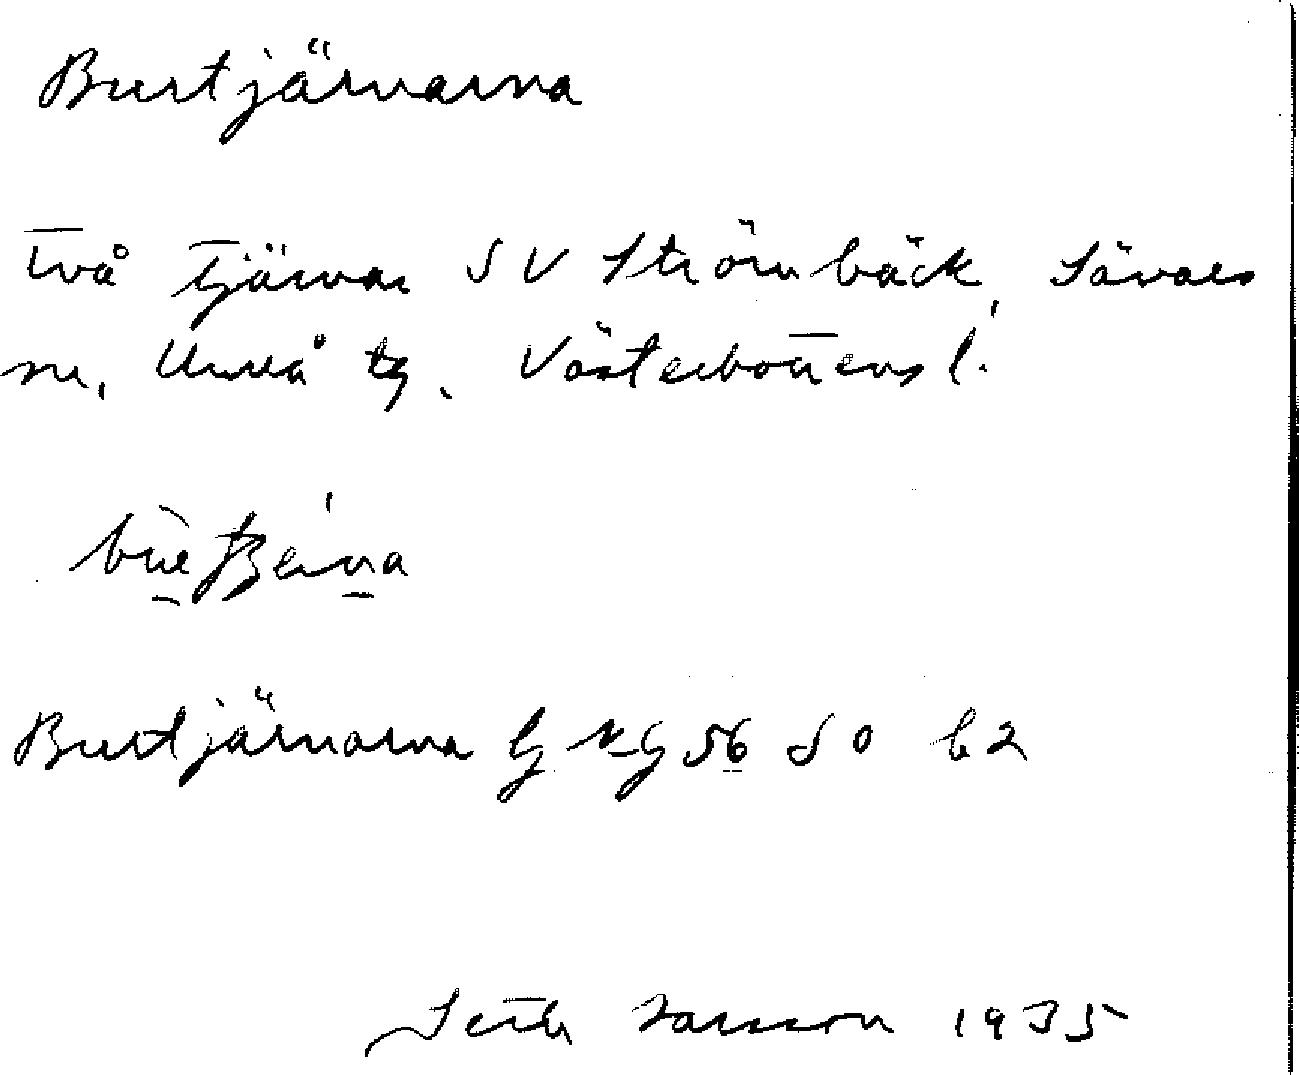 Burtjärnarna
Två Tjärnar SV Strömbäck, Sävars
sn, Umeå tg. Västerbottens l.
Burtjärnarna G kg 56 SO b2
Seth Larsson 1935